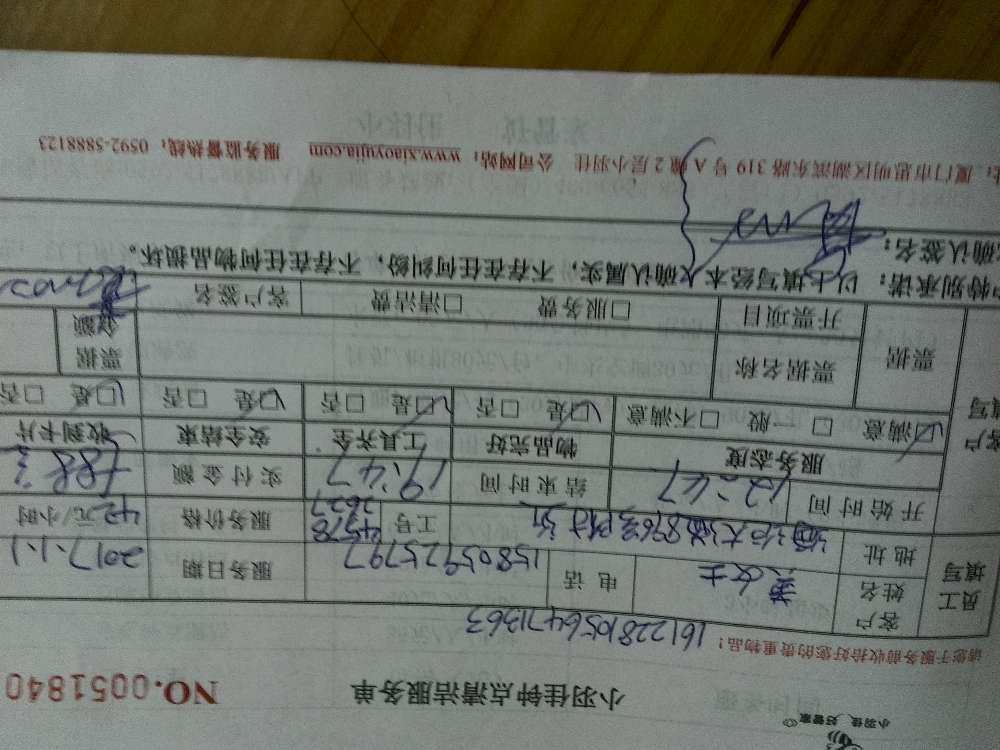 小羽佳 好管家
小羽佳钟点清洁服务单 NO.0051840
请您于服务前收拾好您的贵重物品！
161228105647 1363
员工填写 客户姓名 女士 电话 15805925797 服务日期 2017.1.1
地址 工号 服务价格 42元/小时
客户填写 开始时间 12:47 结束时间 19:47 实付金额
服务态度 物品完好 工具齐全 安全结束 收到卡片
☑满意 □一般 □不满意 ☑是 □否 ☑是 □否 ☑是 □否 ☑是 □否
票据 票据名称 票据金额
开票项目 □服务费 □清洁费 客户签名
特别承诺：以上填写经本人确认属实，不存在任何纠纷，不存在任何物品损坏。
确认签名：
厦门市思明区湖滨东路 319 号 A 幢 2 层小羽佳 公司网站：www.xiaoyujia.com 服务监督热线：0592-5888123